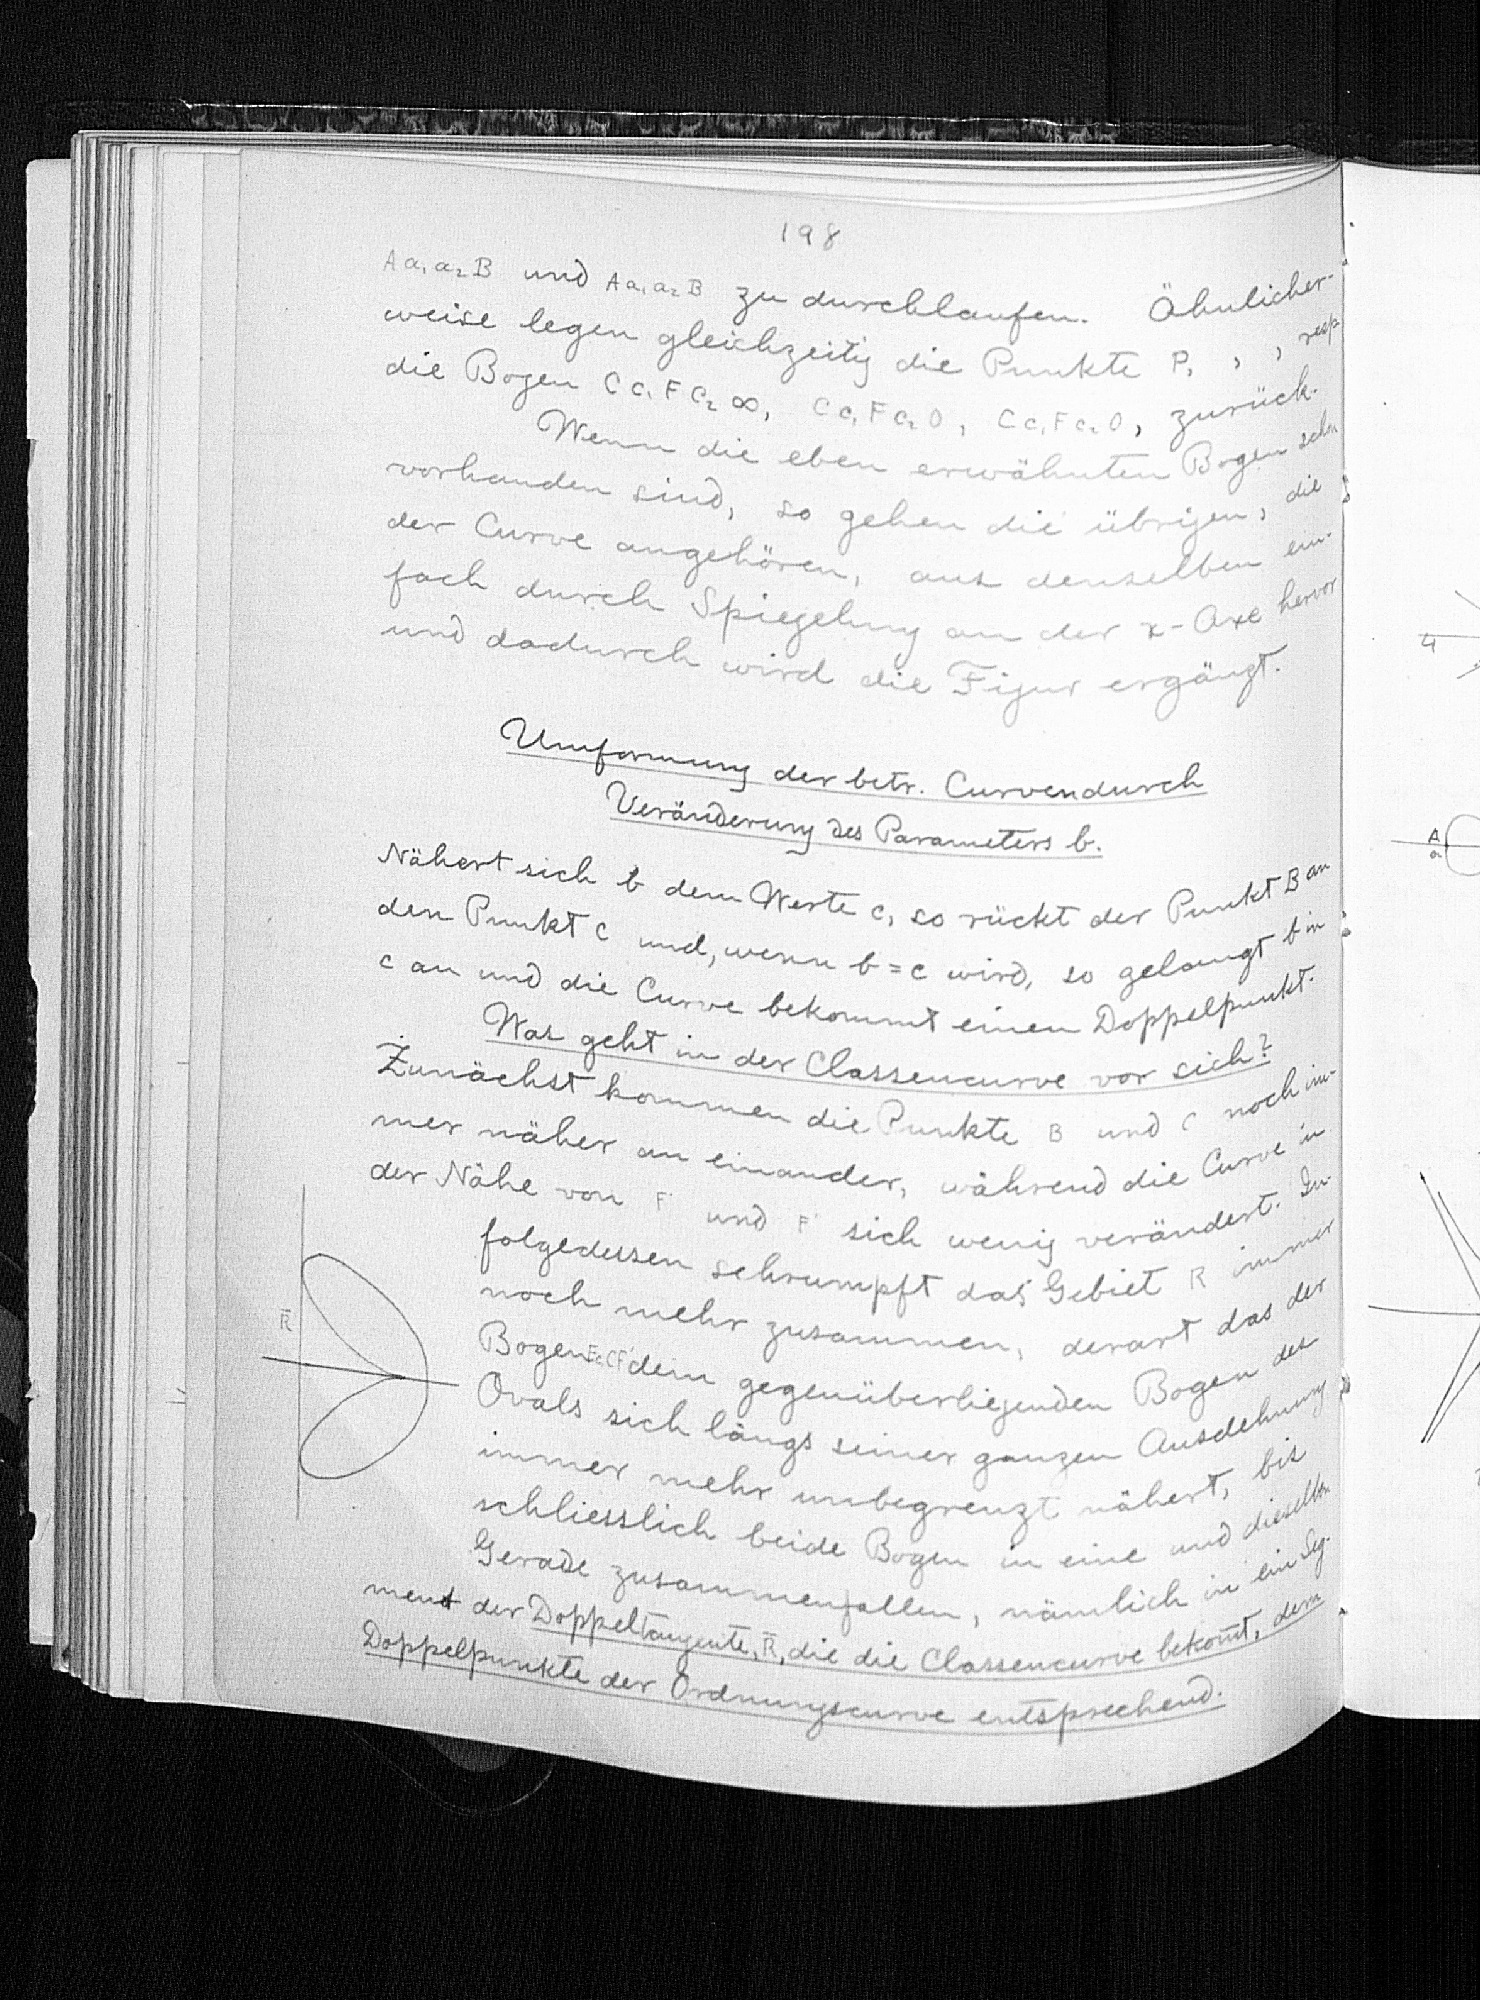 198
A a₁ a₂ B und A a₁ a₂ B zu durchlaufen. Ähnlicher-
weise legen gleichzeitig die Punkte P, , , resp
die Bogen C c₁ F c₂ ∞, C c₁ F c₂ O, C c₁ F c₂ O, zurück.
Wenn die eben erwähnten Bogen schon
vorhanden sind, so gehen die übrigen, die
der Curve angehören, aus denselben ein-
fach durch Spiegelung an der x-Axe hervor
und dadurch wird die Figur ergänzt.
Umformung der betr. Curven durch
Veränderung des Parameters b.
Nähert sich b dem Werte c, so rückt der Punkt B an
den Punkt C und, wenn b = c wird, so gelangt b in
c an und die Curve bekommt einen Doppelpunkt.
Was geht in der Classencurve vor sich?
Zunächst kommen die Punkte B und C noch im-
mer näher an einander, während die Curve in
der Nähe von F und F' sich wenig verändert. In-
folgedessen schrumpft das Gebiet R immer
noch mehr zusammen, derart das der
Bogen dem gegenüberliegenden Bogen des
Ovals sich längs seiner ganzen Ausdehnung
immer mehr unbegrenzt nähert, bis
schliesslich beide Bogen in eine und dieselbe
Gerade zusammenfallen, nämlich in ein Seg-
ment der Doppeltangente, R̄, die die Classencurve bekomt, dem
Doppelpunkte der Ordnungscurve entsprechend.
R̄
4
A
a